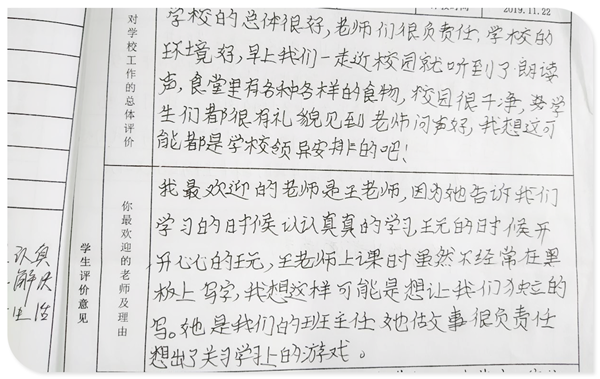 2019.11.22
对学校工作的总体评价
学校的总体很好,老师们很负责任,学校的
环境好,早上我们一走近校园就听到了朗读
声,食堂里有各种各样的食物,校园很干净,
生们都很有礼貌见到老师问声好,我想这可
能都是学校领导安排的吧!
学生评价意见
你最欢迎的老师及理由
我最欢迎的老师是王老师,因为她告诉我们
学习的时候认认真真的学习,玩的时候开
开心心的玩,王老师上课时虽然不经常在黑
板上写字,我想这样可能是想让我们独立的
写。她是我们的班主任 她做事很负责任
想出了关习学习上的游戏。